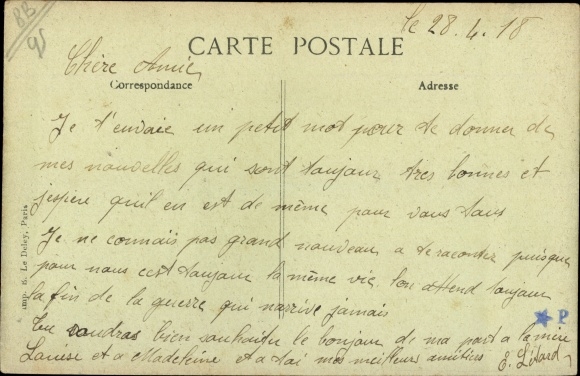 BB
95
le 28.4.18
CARTE POSTALE
Chère Amie
Correspondance
Adresse
Je t'envoie un petit mot pour te donner de
mes nouvelles qui sont toujour tres bonnes et
jespere qu'il en est de même pour vous tous
Je ne connais pas grand nouveau a te raconter puisque
pour nous cest toujour la même vie lon attend toujour
la fin de la guerre qui narrive jamais
Tu voudras bien souhaiter le bonjour de ma part a la mère
Louise et a Madeleine et a toi mes meilleurs amitiés
Imp. E. Le Deley, Paris
P